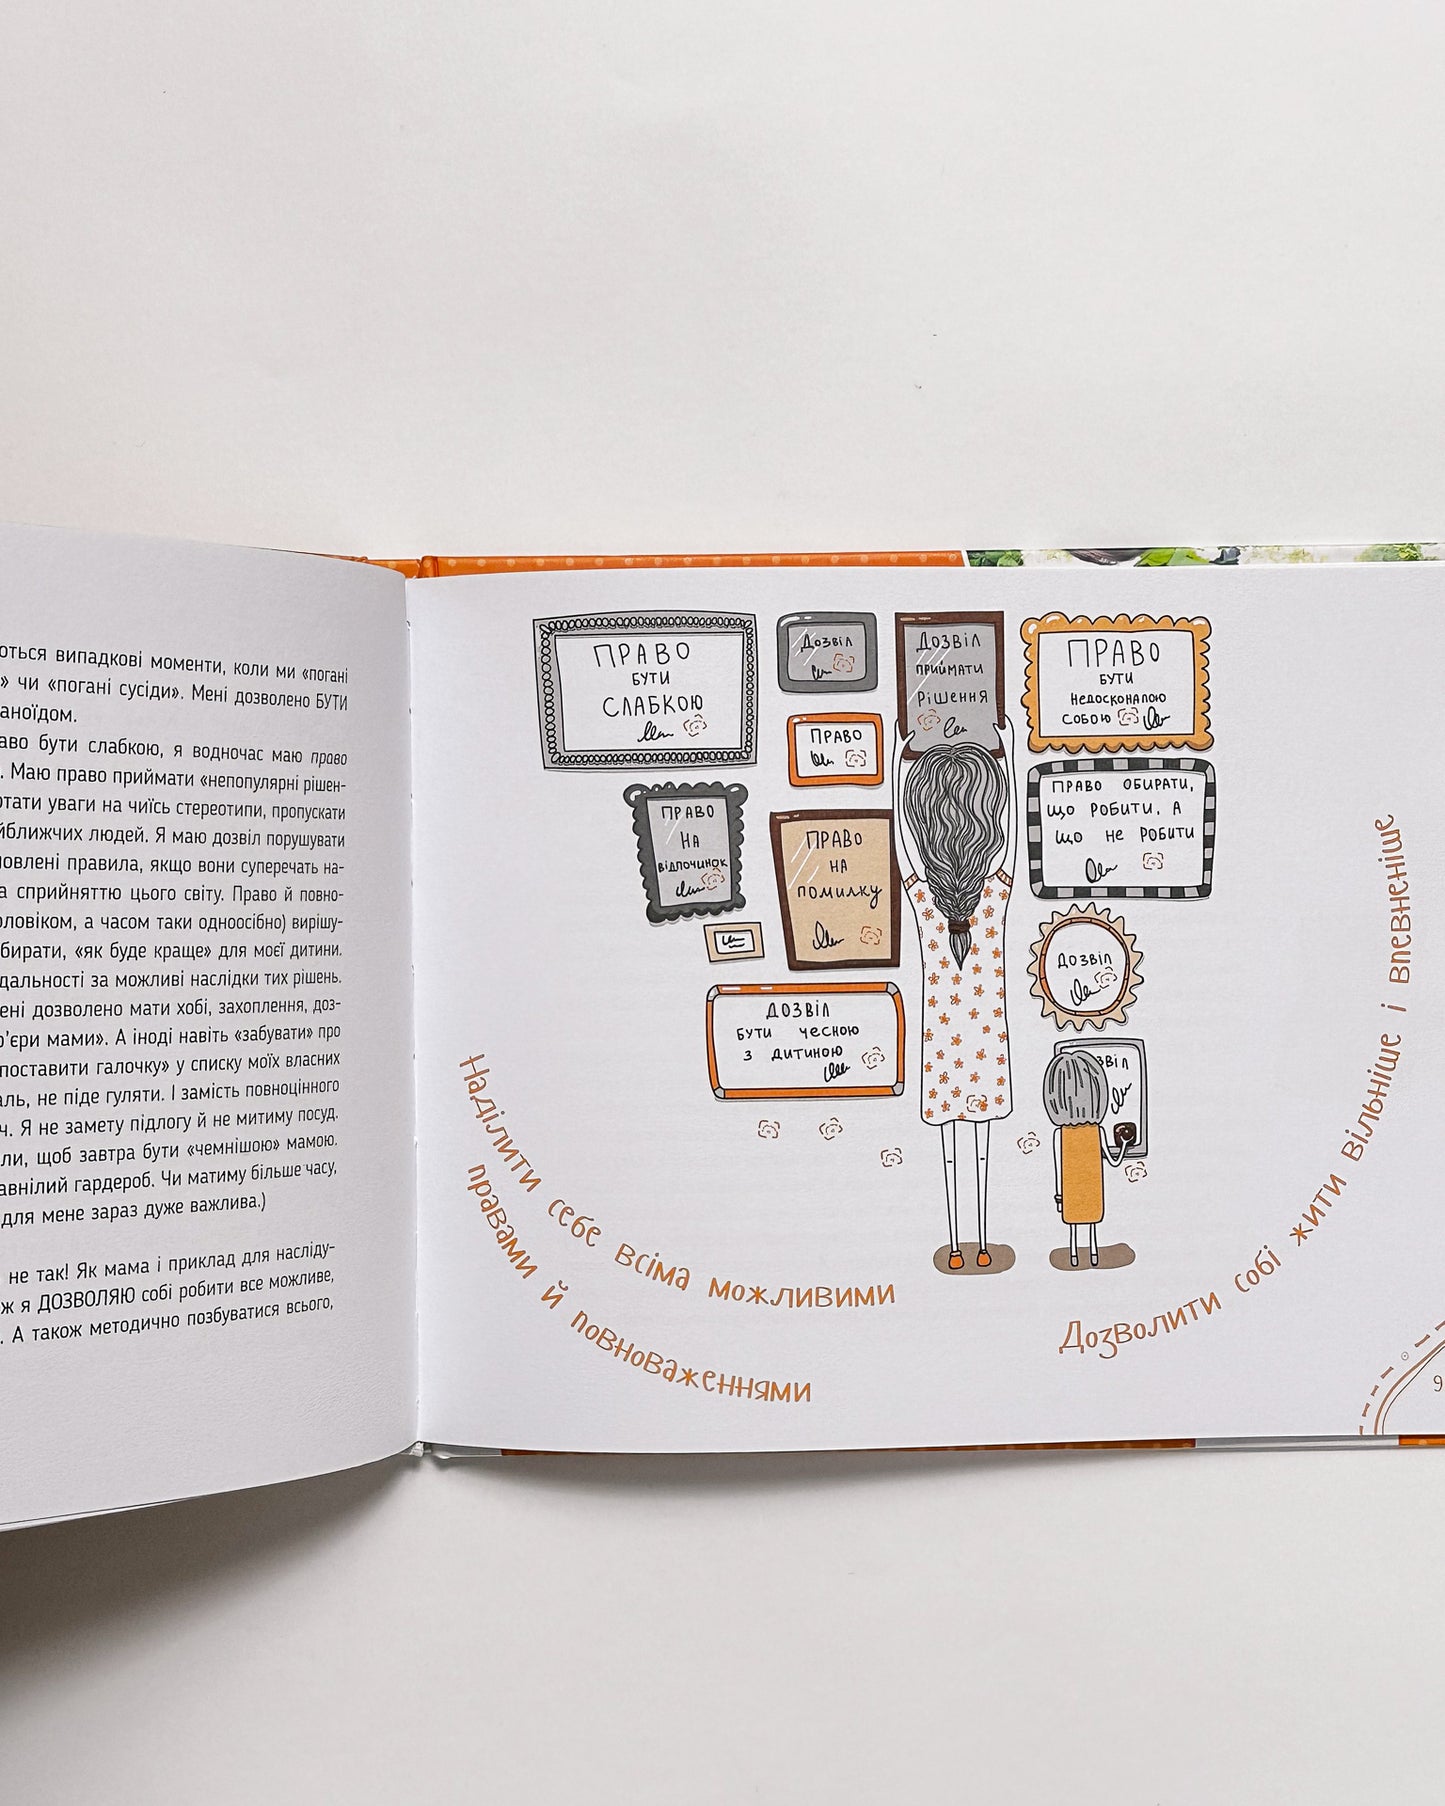 ються випадкові моменти, коли ми «погані
» чи «погані сусіди». Мені дозволено БУТИ
аноїдом.
аво бути слабкою, я водночас маю право
. Маю право приймати «непопулярні рішен-
ртати уваги на чиїсь стереотипи, пропускати
йближчих людей. Я маю дозвіл порушувати
новлені правила, якщо вони суперечать на-
а сприйняттю цього світу. Право й повно-
оловіком, а часом таки одноосібно) вирішу-
бирати, «як буде краще» для моєї дитини.
дальності за можливі наслідки тих рішень.
ені дозволено мати хобі, захоплення, доз-
р’єри мами». А іноді навіть «забувати» про
поставити галочку» у списку моїх власних
аль, не піде гуляти. І замість повноцінного
ч. Я не замету підлогу й не митиму посуд.
ли, щоб завтра бути «чемнішою» мамою.
авнілий гардероб. Чи матиму більше часу,
для мене зараз дуже важлива.)
не так! Як мама і приклад для насліду-
ж я ДОЗВОЛЯЮ собі робити все можливе,
. А також методично позбуватися всього,
ПРАВО
БУТИ
СЛАБКОЮ
ДОЗВІЛ
ДОЗВІЛ
ПРИЙМАТИ
РІШЕННЯ
ПРАВО
БУТИ
НЕДОСКОНАЛОЮ
СОБОЮ
ПРАВО
ПРАВО ОБИРАТИ,
ЩО РОБИТИ, А
ЩО НЕ РОБИТИ
ПРАВО
НА
ВІДПОЧИНОК
ПРАВО
НА
ПОМИЛКУ
ДОЗВІЛ
ДОЗВІЛ
БУТИ ЧЕСНОЮ
З ДИТИНОЮ
ЗВІЛ
Наділити себе всіма можливими
правами й повноваженнями
Дозволити собі жити вільніше і впевненіше
9